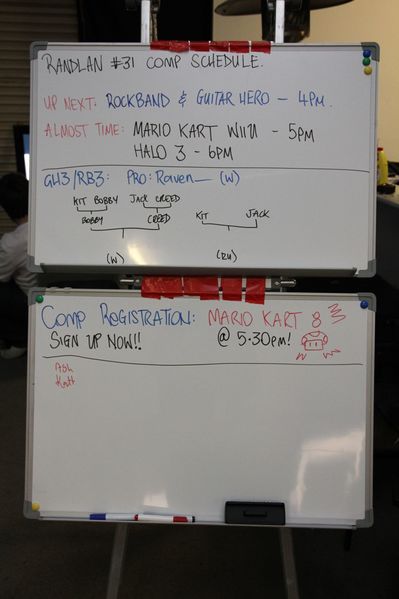 RANDLAN #31 COMP SCHEDULE.
UP NEXT: ROCKBAND & GUITAR HERO - 4PM.
ALMOST TIME: MARIO KART WIIU - 5PM
HALO 3 - 6PM
GH3/RB3: PRO: Raven_ (W)
KIT BOBBY JACK CREED
BOBBY CREED KIT JACK
(W) (RU)
COMP REGISTRATION: MARIO KART 8
SIGN UP NOW!! @ 5·30pm!
Ash